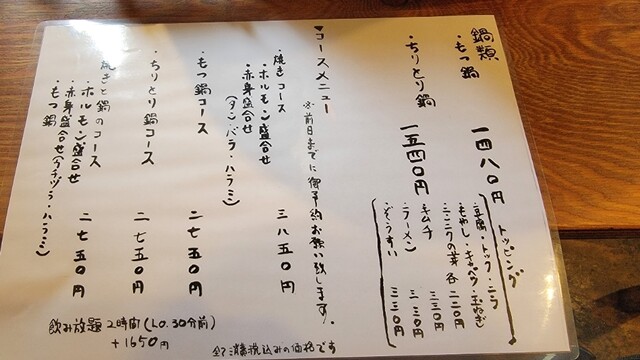 鍋類
・もつ鍋 一四八〇円
・ちりとり鍋 一五四〇円
トッピング
・豆腐・トック・ニラ
・もやし・キャベツ・玉ねぎ
・ニンニクの芽 各二二〇円
・キムチ 三三〇円
・ラーメン 三三〇円
・ぞうすい 三三〇円
▼コースメニュー ※前日までに御予約お願い致します。
・焼きコース 三八五〇円
・ホルモン盛合せ
・赤身盛合せ
(タン・バラ・ハラミ)
・もつ鍋コース 二七五〇円
・ちりとり鍋コース 二七五〇円
・焼きと鍋のコース 二七五〇円
・ホルモン盛合せ
・赤身盛合せ(ウチヅラ・ハラミ)
・もつ鍋
飲み放題 2時間(L.O.30分前)
+1650円
全て消費税込みの価格です